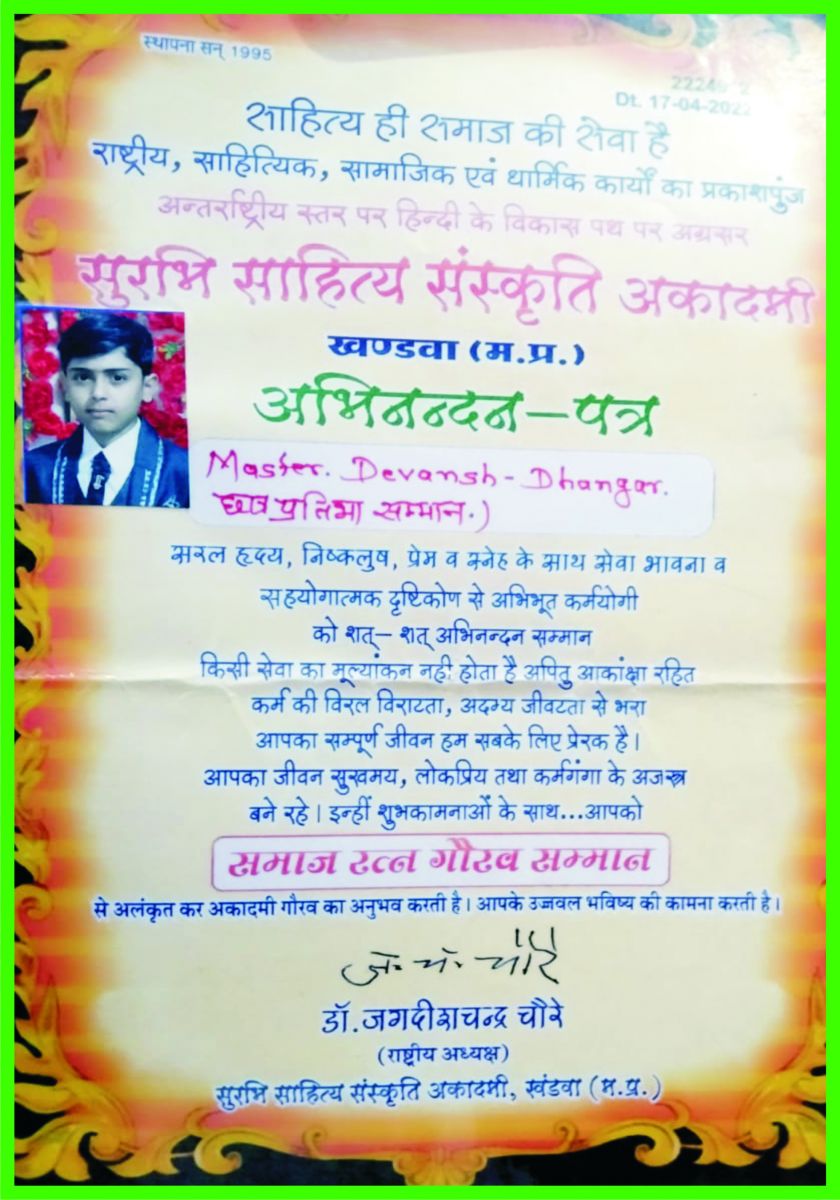 स्थापना सन् 1995
Dt. 17-04-2022
साहित्य ही समाज की सेवा है
राष्ट्रीय, साहित्यिक, सामाजिक एवं धार्मिक कार्यों का प्रकाशपुंज
अन्तर्राष्ट्रीय स्तर पर हिन्दी के विकास पथ पर अग्रसर
सुरभि साहित्य संस्कृति अकादमी
खण्डवा (म.प्र.)
अभिनन्दन-पत्र
Master. Devansh-Dhangar.
छात्र प्रतिभा सम्मान.)
सरल हृदय, निष्कलुष, प्रेम व स्नेह के साथ सेवा भावना व
सहयोगात्मक दृष्टिकोण से अभिभूत कर्मयोगी
को शत्- शत् अभिनन्दन सम्मान
किसी सेवा का मूल्यांकन नही होता है अपितु आकांक्षा रहित
कर्म की विरल विराटता, अदम्य जीवटता से भरा
आपका सम्पूर्ण जीवन हम सबके लिए प्रेरक है।
आपका जीवन सुखमय, लोकप्रिय तथा कर्मगंगा के अजस्त्र
बने रहे। इन्हीं शुभकामनाओं के साथ...आपको
समाज रत्न गौरव सम्मान
से अलंकृत कर अकादमी गौरव का अनुभव करती है। आपके उज्जवल भविष्य की कामना करती है।
ज. च. चौरे
डॉ. जगदीशचन्द्र चौरे
(राष्ट्रीय अध्यक्ष)
सुरभि साहित्य संस्कृति अकादमी, खंडवा (म.प्र.)